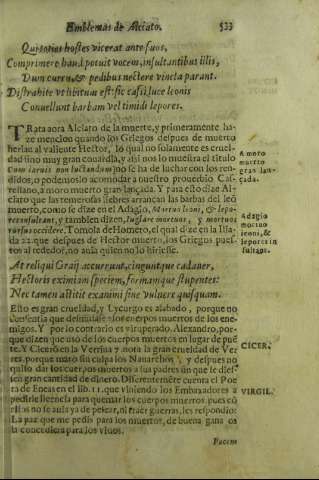 Emblemas de Alciato. 533
Qui toties hostes vicerat ante suos,
Comprimere haud potuit vocem, insultantibus illis,
Dum curru, & pedibus nectere vincla parant.
Distrahite vt libitum est: sic cassi luce leonis
Conuellunt barbam vel timidi lepores.
TRata aora Alciato de la muerte, y primeramente ha-
ze mencion quando los Griegos despues de muerto
herian al valiente Hector, lo qual no solamente es cruel-
dad sino muy gran couardia, y assi nos lo muestra el titulo
Cum laruis non luctandum, no se ha de luchar con los ren-
didos, o podemoslo acomodar a nuestro prouerbio Cas-
tellano, a moro muerto gran lançada. Y para esto dize Al-
ciato que las temerosas liebres arrancan las barbas del leõ
muerto, como se dize en el Adagio, Mortuo leoni, & lepo-
res insultant, y tambien dizen, Iugulare mortuos, y mortuos
rursus occidere. Tomola de Homero, el qual dize en la Ilia-
da 22. que despues de Hector muerto, los Griegos pusie-
ron al rededor, no auia quien no lo hiriesse.
At reliqui Graij accurrunt, cinguntque cadauer,
Hectoris eximiam speciem, formamque stupentes:
Nec tamen astitit exanimi sine vulnere quisquam.
Esto es gran crueldad, y Lycurgo es alabado, porque no
consentia que desnudassen los cuerpos muertos de los ene-
migos. Y por lo contrario es vituperado Alexandro, por-
que dizen que uso de los cuerpos muertos en lugar de puẽ
te. Y Ciceró en la Verrina 7 nota la gran crueldad de Ver
res, porque mato sin culpa los Nauarchos, y despues no
quiso dar los cuerpos muertos a sus padres sin que le dies-
sen gran cantidad de dinero. Diferentemente cuenta el Poe
ta de Eneas en el lib. 11. que viniendo los Embaxadores a
pedirle licencia para quemar los cuerpos muertos, pues cõ
ellos no se auia ya de pelear, ni traer guerras, les respondio:
La paz que me pedis para los muertos, de buena gana os
la concediera para los viuos.
Pacem
A moro
muerto
gran lan-
çada.
Adagio
mortuo
leoni, &
lepores in
sultant.
CICER.
VIRGIL.